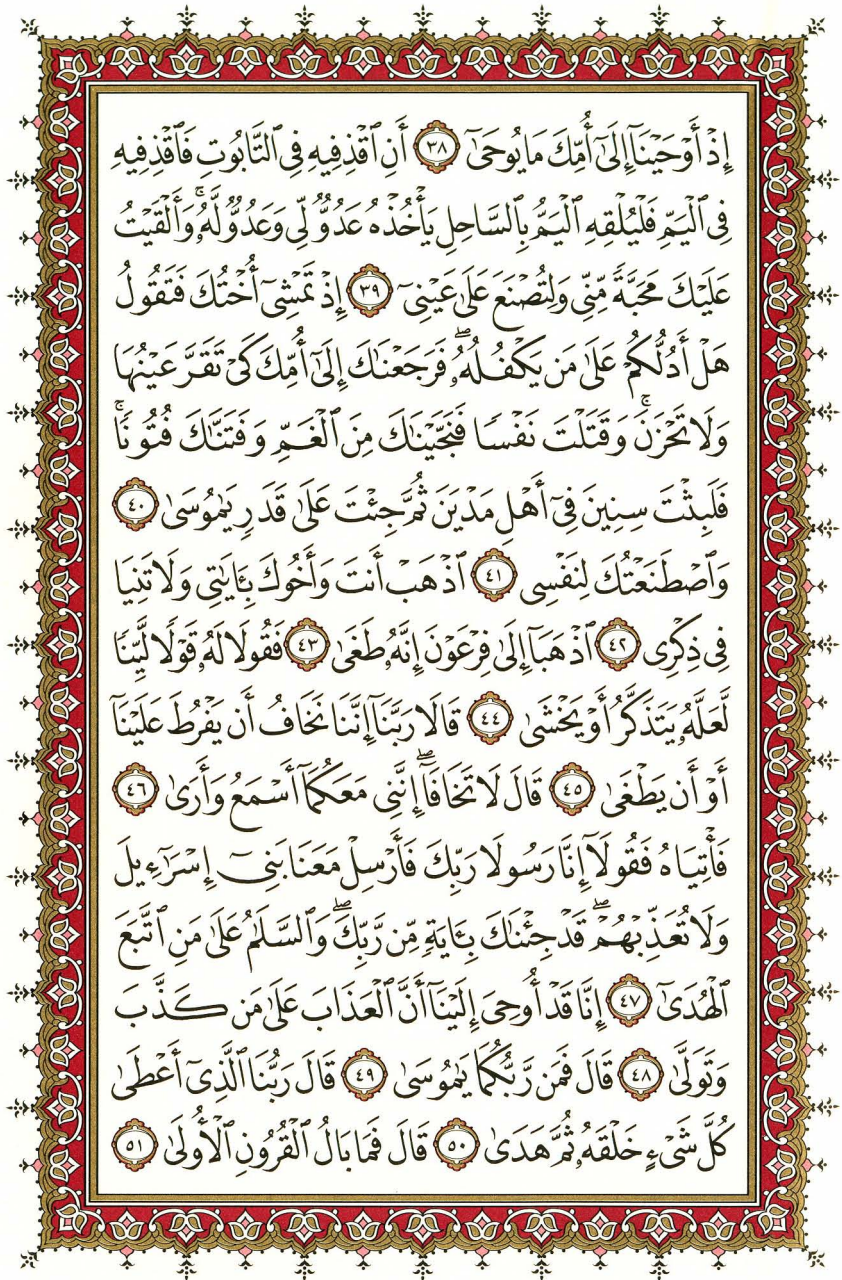 إِذْ أَوْحَيْنَآ إِلَىٰٓ أُمِّكَ مَا يُوحَىٰٓ ٣٨ أَنِ ٱقْذِفِيهِ فِى ٱلتَّابُوتِ فَٱقْذِفِيهِ
فِى ٱلْيَمِّ فَلْيُلْقِهِ ٱلْيَمُّ بِٱلسَّاحِلِ يَأْخُذْهُ عَدُوٌّ لِّى وَعَدُوٌّ لَّهُۥ ۚ وَأَلْقَيْتُ
عَلَيْكَ مَحَبَّةً مِّنِّى وَلِتُصْنَعَ عَلَىٰ عَيْنِىٓ ٣٩ إِذْ تَمْشِىٓ أُخْتُكَ فَتَقُولُ
هَلْ أَدُلُّكُمْ عَلَىٰ مَن يَكْفُلُهُۥ ۖ فَرَجَعْنَـٰكَ إِلَىٰٓ أُمِّكَ كَىْ تَقَرَّ عَيْنُهَا
وَلَا تَحْزَنَ ۚ وَقَتَلْتَ نَفْسًا فَنَجَّيْنَـٰكَ مِنَ ٱلْغَمِّ وَفَتَنَّـٰكَ فُتُونًا ۚ
فَلَبِثْتَ سِنِينَ فِىٓ أَهْلِ مَدْيَنَ ثُمَّ جِئْتَ عَلَىٰ قَدَرٍ يَـٰمُوسَىٰ ٤٠
وَٱصْطَنَعْتُكَ لِنَفْسِى ٤١ ٱذْهَبْ أَنتَ وَأَخُوكَ بِـَٔايَـٰتِى وَلَا تَنِيَا
فِى ذِكْرِى ٤٢ ٱذْهَبَآ إِلَىٰ فِرْعَوْنَ إِنَّهُۥ طَغَىٰ ٤٣ فَقُولَا لَهُۥ قَوْلًا لَّيِّنًا
لَّعَلَّهُۥ يَتَذَكَّرُ أَوْ يَخْشَىٰ ٤٤ قَالَا رَبَّنَآ إِنَّنَا نَخَافُ أَن يَفْرُطَ عَلَيْنَآ
أَوْ أَن يَطْغَىٰ ٤٥ قَالَ لَا تَخَافَآ ۖ إِنَّنِى مَعَكُمَآ أَسْمَعُ وَأَرَىٰ ٤٦
فَأْتِيَاهُ فَقُولَآ إِنَّا رَسُولَا رَبِّكَ فَأَرْسِلْ مَعَنَا بَنِىٓ إِسْرَٰٓءِيلَ
وَلَا تُعَذِّبْهُمْ ۖ قَدْ جِئْنَـٰكَ بِـَٔايَةٍ مِّن رَّبِّكَ ۖ وَٱلسَّلَـٰمُ عَلَىٰ مَنِ ٱتَّبَعَ
ٱلْهُدَىٰٓ ٤٧ إِنَّا قَدْ أُوحِىَ إِلَيْنَآ أَنَّ ٱلْعَذَابَ عَلَىٰ مَن كَذَّبَ
وَتَوَلَّىٰ ٤٨ قَالَ فَمَن رَّبُّكُمَا يَـٰمُوسَىٰ ٤٩ قَالَ رَبُّنَا ٱلَّذِىٓ أَعْطَىٰ
كُلَّ شَىْءٍ خَلْقَهُۥ ثُمَّ هَدَىٰ ٥٠ قَالَ فَمَا بَالُ ٱلْقُرُونِ ٱلْأُولَىٰ ٥١